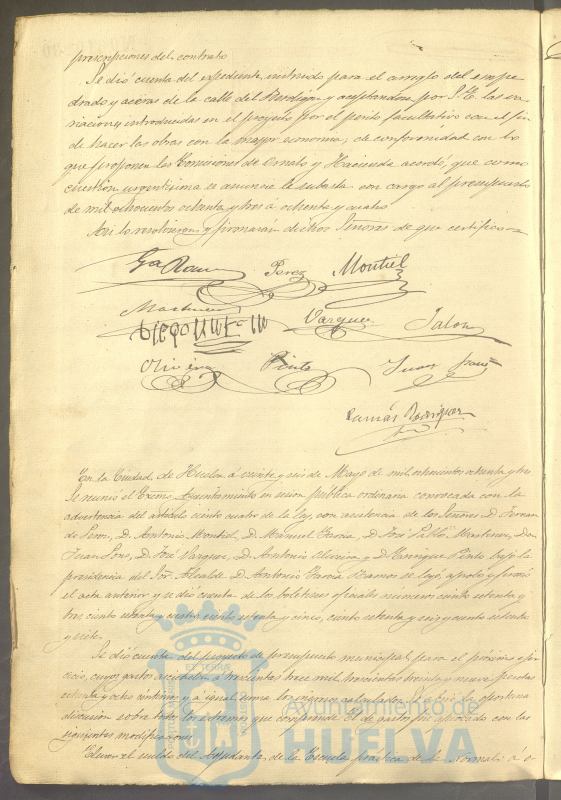 prescripciones del contrato
Se dió cuenta del expediente instruido para el arreglo del empe
drado y aceras de la calle del Berdigon y aceptandose por S. E. las va
riaciones introducidas en el proyecto por el perito facultativo con el fin
de hacer las obras con la mayor economia, de conformidad con lo
que proponen las Comisiones de Ornato y Hacienda acordó, que como
cuestion urgentisima se anuncie la subasta con cargo al presupuesto
de mil ochocientos ochenta y tres á ochenta y cuatro
Asi lo resolvieron y firmarán dichos Señores de que certifico=
Ga Ramos Perez Montiel
Martinez Vazquez Jalon
Oliveira Pinto Juan
Ramas Rodriguez
En la Ciudad de Huelva á veinte y seis de Mayo de mil ochocientos ochenta y tres
Se reunió el Excmo Ayuntamiento en sesion publica ordinaria convocada con la
advertencia del articulo ciento cuatro de la ley, con asistencia de los Señores D. Fernan
do Perez, D. Antonio Montiel, D. Manuel Garcia, D. José Pablo Martinez, Don
Juan Pons, D. José Vazquez, D. Antonio Oliveira y D. Enrique Pinto bajo la
presidencia del Sor Alcalde D. Antonio Garcia Ramos se leyó, aprobó y firmó
el acta anterior y se dió cuenta de los boletines oficiales numeros ciento setenta y
tres, ciento setenta y cuatro, ciento setenta y cinco, ciento setenta y seis y ciento setenta
y siete.
Se dió cuenta del proyecto de presupuesto municipal para el próximo ejer
cicio, cuyos gastos ascienden á trescientas trece mil, trescientas treinta y nueve pesetas
setenta y ocho centimos y á igual suma los ingresos calculados y abierta la oportuna
discusion sobre todos los estremos que comprende el de gastos fué aprobado con las
siguientes modificaciones
Elevar el sueldo del Ayudante de la Escuela práctica de la Normal á o
Ayuntamiento de
HUELVA